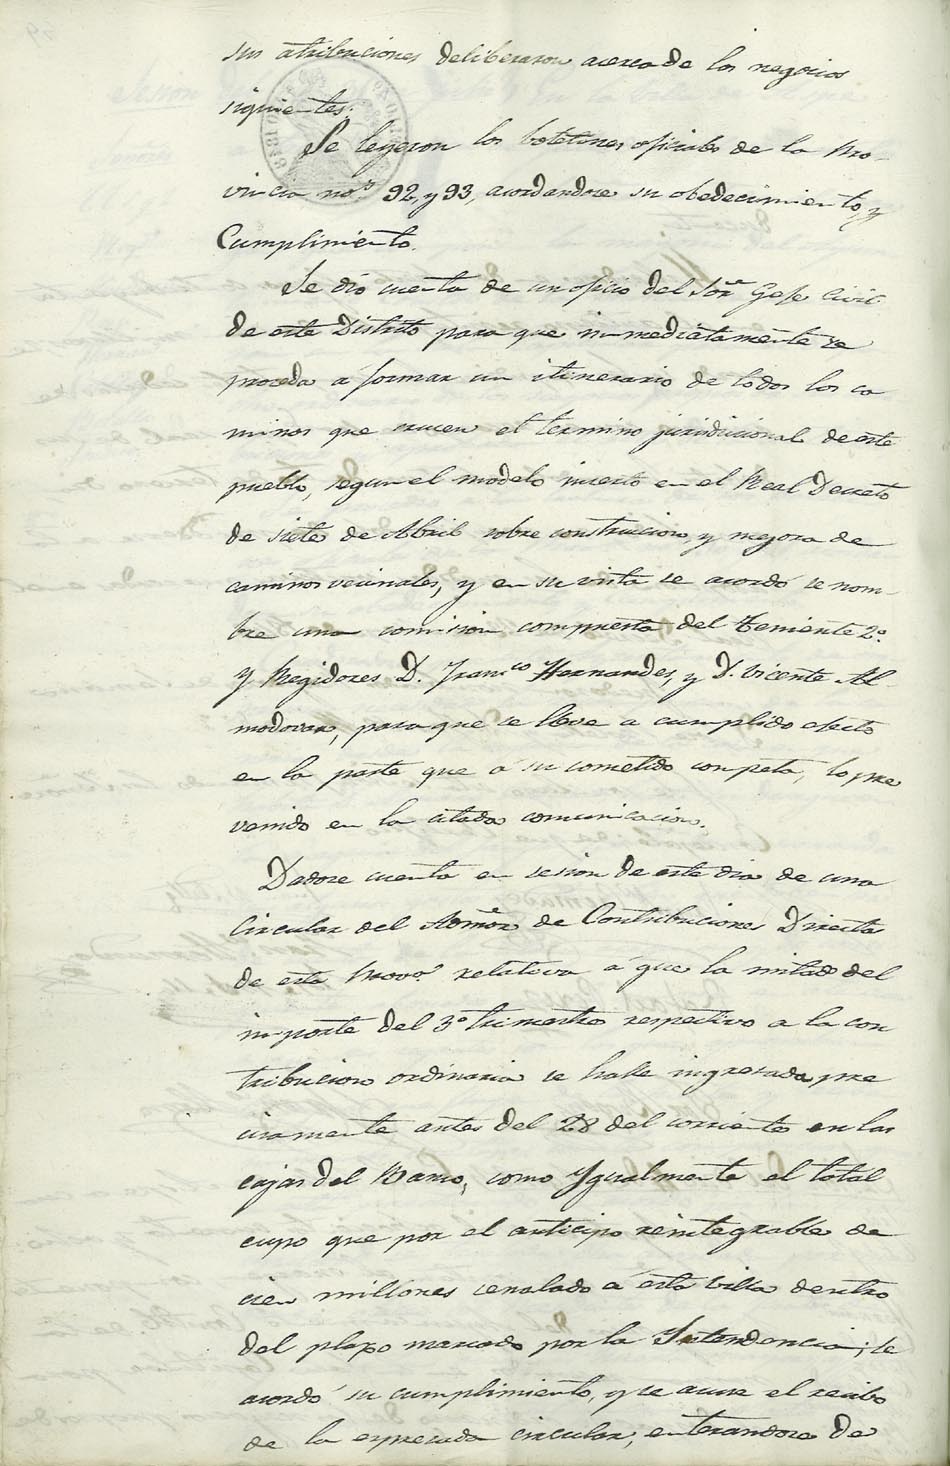 sus atribuciones deliberaron acerca de los negocios
siguientes:
Se leyeron los boletines oficiales de la Pro-
vincia nos. 92, y 93, acordandose su obedecimiento, y
Cumplimiento.
Se dio cuenta de un oficio del Sor. Gefe Civil
de este Distrito para que inmediatamente se
proceda a formar un itinerario de todos los ca
minos que crucen el termino juridicional de este
pueblo, segun el modelo inserto en el Real Decreto
de siete de Abril sobre construccion, y mejora de
caminos vecinales, y en su vista se acordó se nom-
bre una comision compuesta del Teniente 2º.
y Regidores D. Franco. Hernandes, y D. Vicente Al-
modovar, para que se lleve a cumplido efecto
en la parte que á su cometido competa, lo pre
venido en la citada comunicacion.
Dadose cuenta en sesion de este dia de una
Circular del Admor. de Contribuciones Directas
de esta Prova. relativa á que la mitad del
importe del 3º trimestre respectivo a la con
tribucion ordinaria se halle ingresada pre
cisamente antes del 28 del corriente en las
cajas del Banco, como Ygualmente el total
cupo que por el anticipo reintegrable de
cien millones señalado á esta Villa dentro
del plazo marcado por la Intendencia; se
acordó su cumplimiento, y se acuse el recibo
de la expresada circular, enterandose de